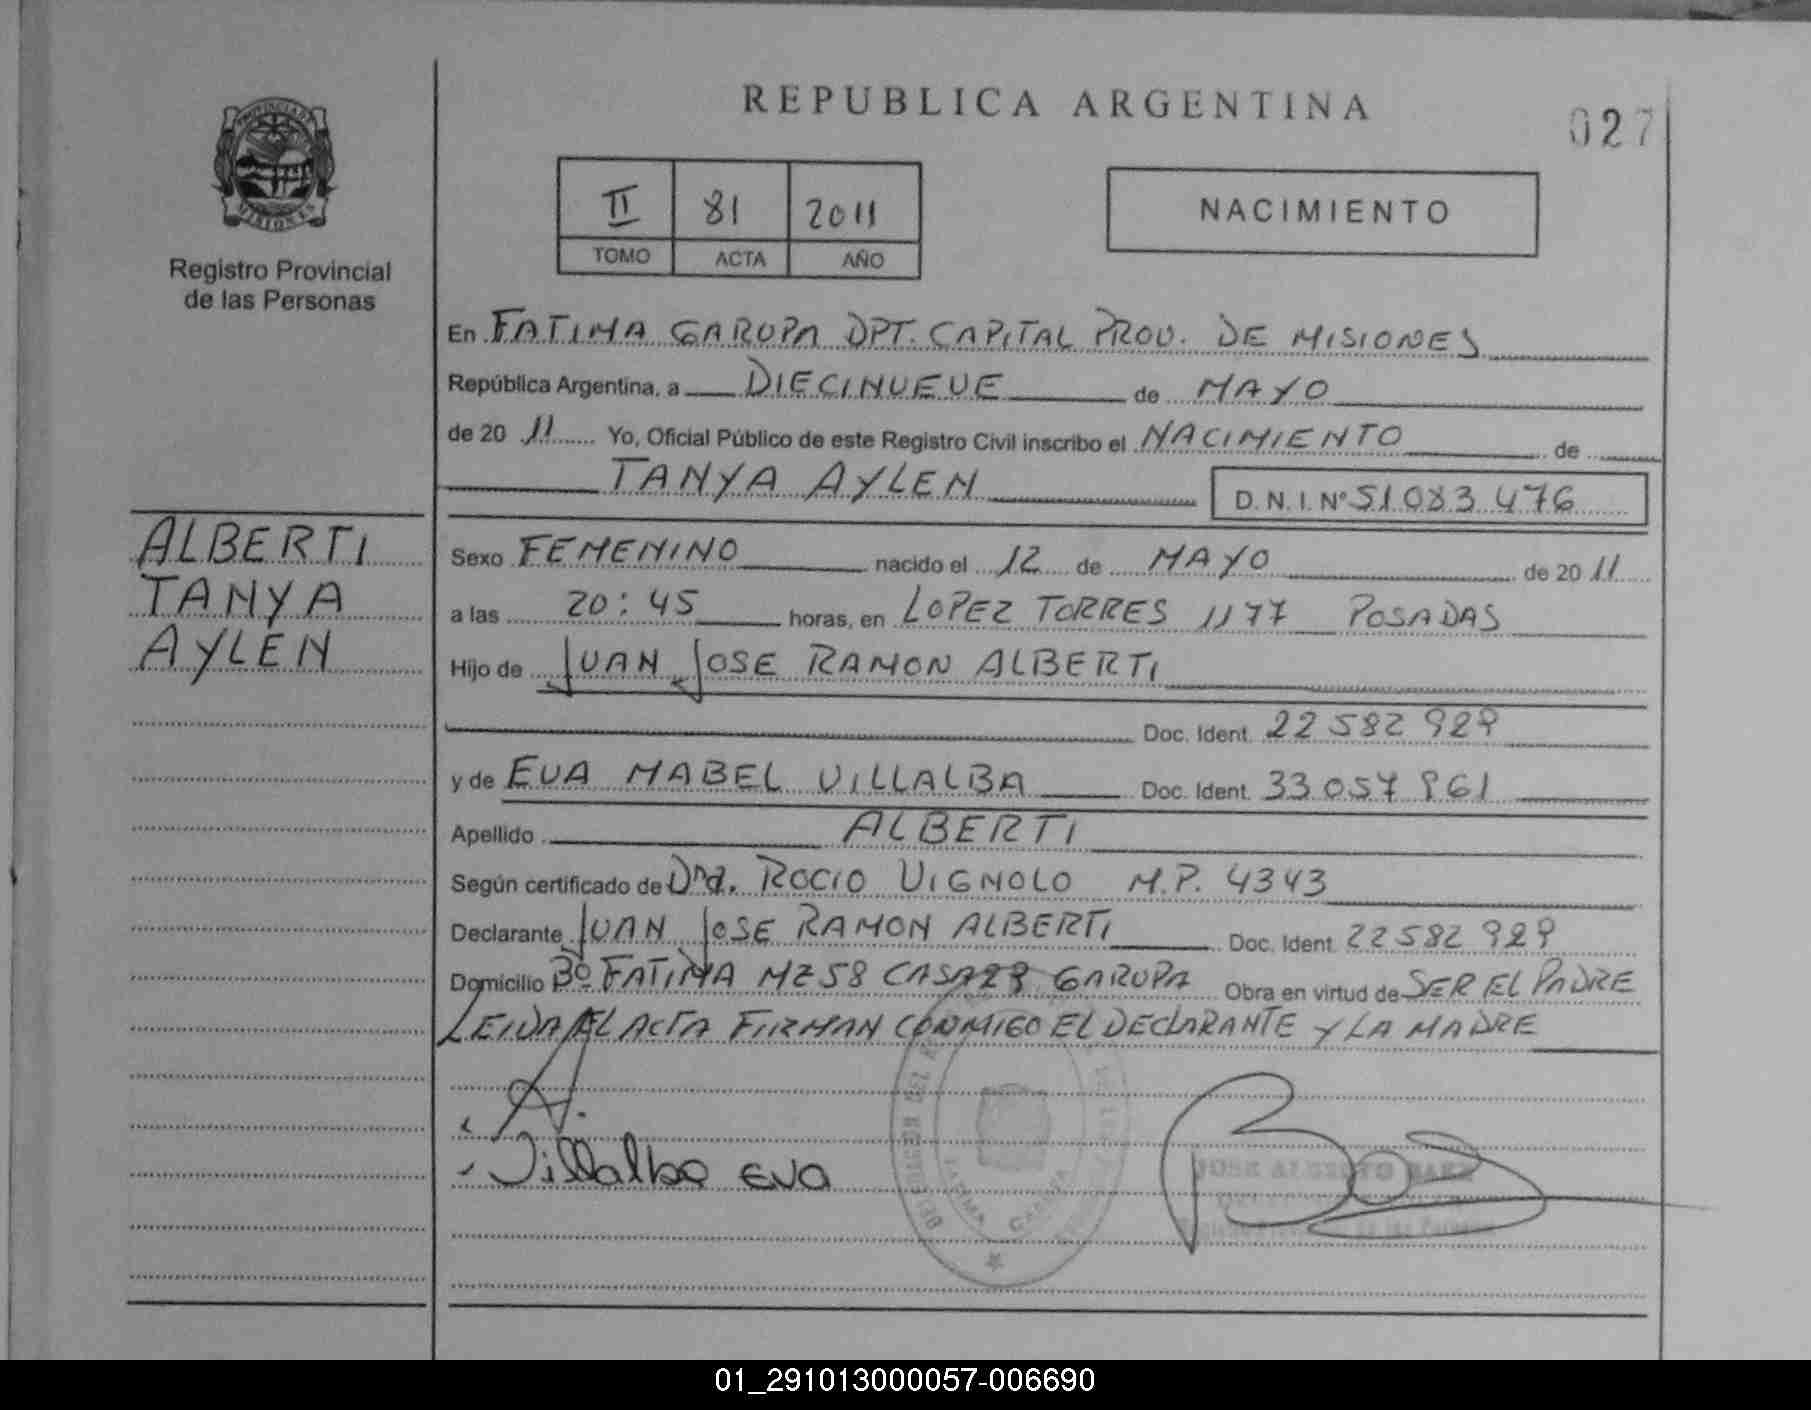 REPUBLICA ARGENTINA
027
PROVINCIA DE
MISIONES
Registro Provincial
de las Personas
II 81 2011
TOMO ACTA AÑO
NACIMIENTO
En FATIMA GARUPA DPT. CAPITAL PROV. DE MISIONES
República Argentina, a DIECINUEVE de MAYO
de 20 11 Yo, Oficial Público de este Registro Civil inscribo el NACIMIENTO de
TANYA AYLEN D.N.I. Nº 51.083.476
ALBERTI
TANYA
AYLEN
Sexo FEMENINO nacido el 12 de MAYO de 20 11
a las 20:45 horas, en LOPEZ TORRES 1177 POSADAS
Hijo de JUAN JOSE RAMON ALBERTI
Doc. Ident. 22 582 929
y de EVA MABEL VILLALBA Doc. Ident. 33 057 961
Apellido ALBERTI
Según certificado de Dra. ROCIO VIGNOLO M.P. 4343
Declarante JUAN JOSE RAMON ALBERTI Doc. Ident. 22582 929
Domicilio Bº FATIMA MZ 58 CASA 29 GARUPA Obra en virtud de SER EL PADRE
LEIDA EL ACTA FIRMAN CONMIGO EL DECLARANTE Y LA MADRE
Villalba Eva
FATIMA GARUPA
JOSE ALBERTO BAEZ
01_291013000057-006690